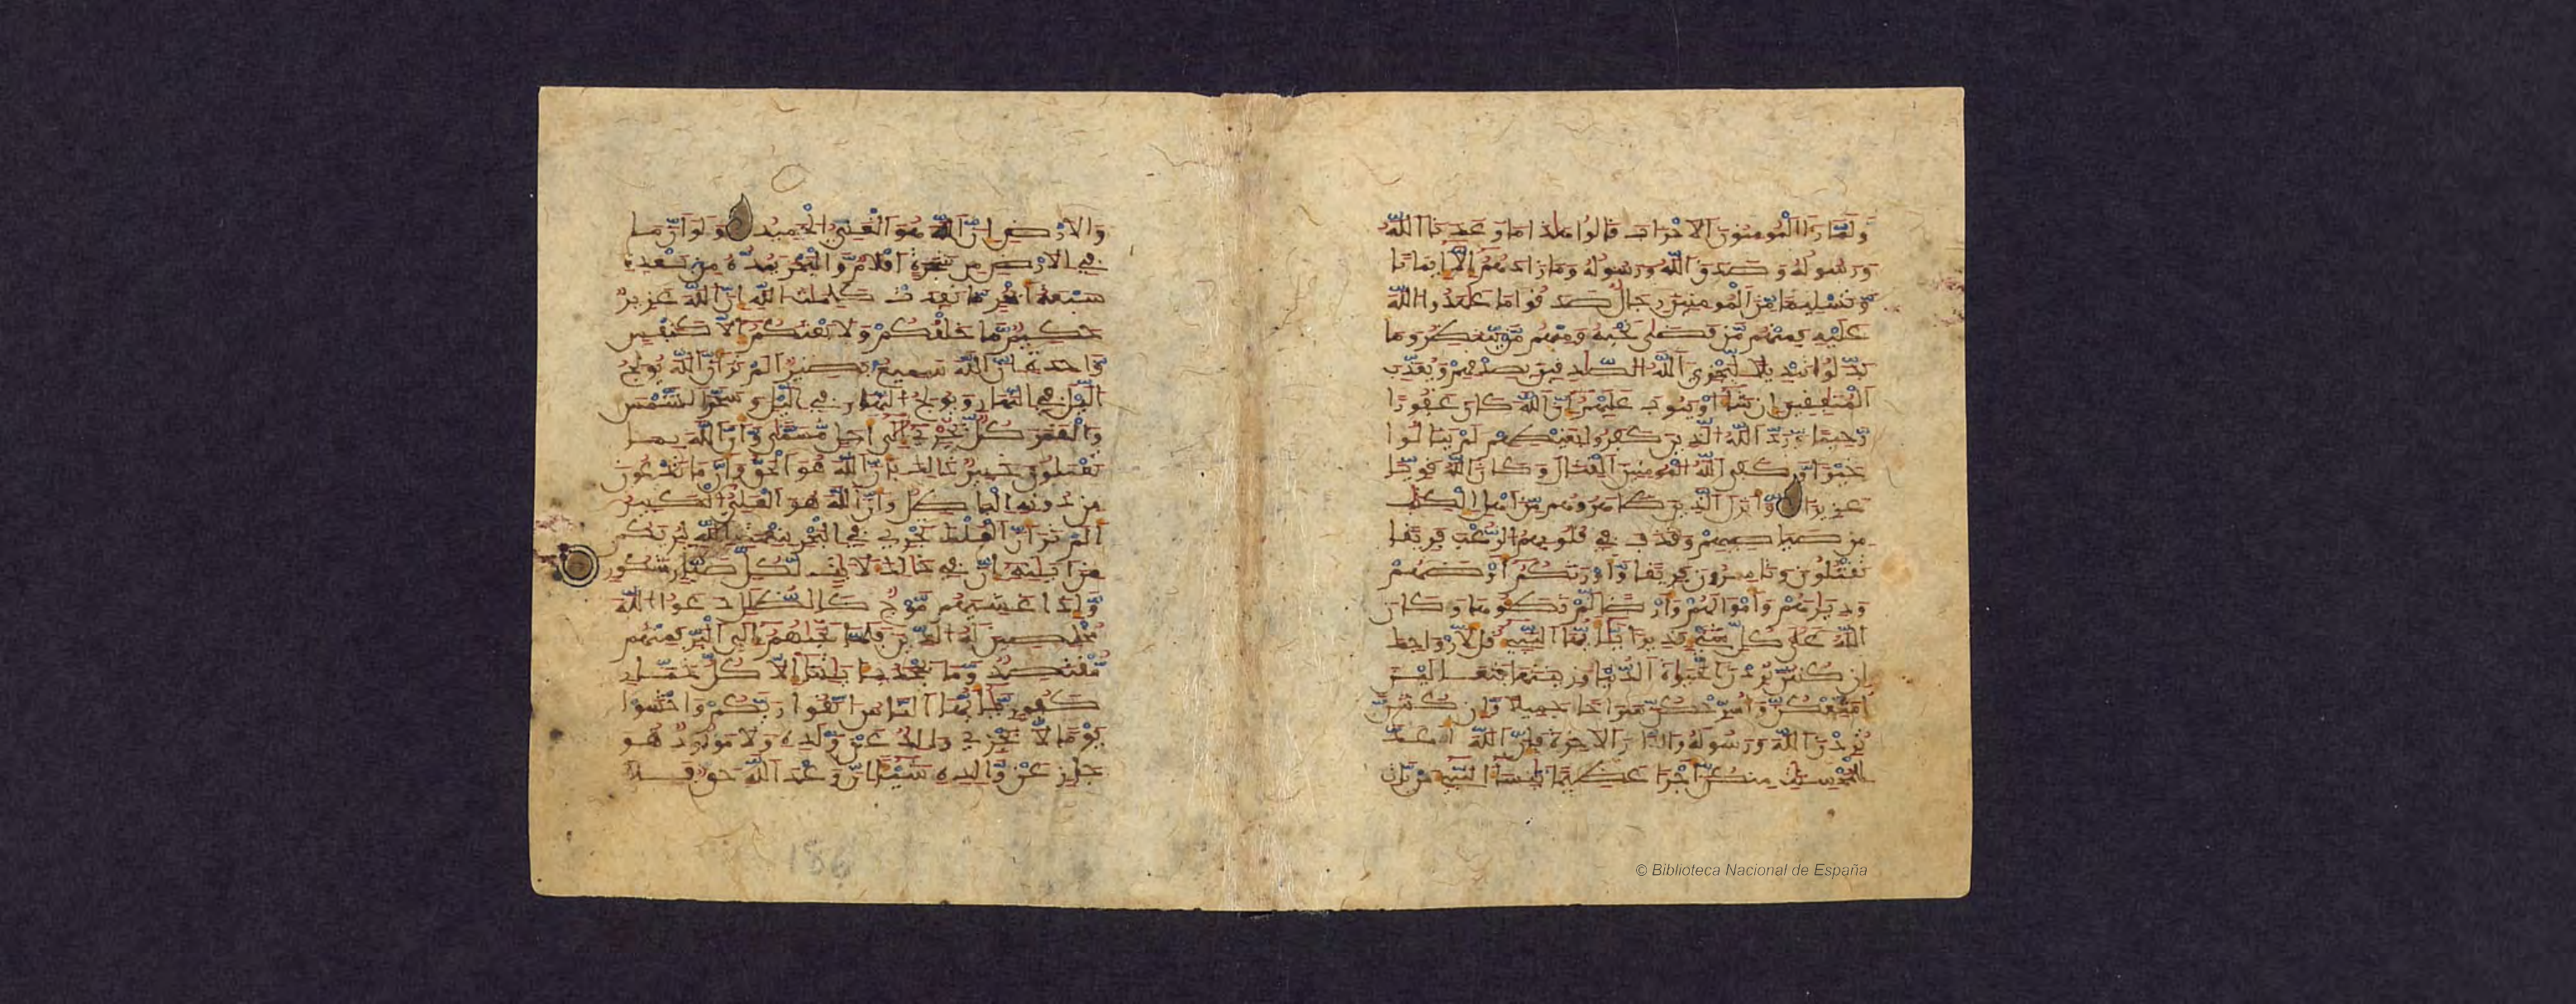 وَلَمَّا رَءَا اَلْمُومِنُونَ اَلَاحْزَابَ قَالُوا هَٰذَا مَا وَعَدَنَا اَللَّهُ
وَرَسُولُهُ وَصَدَقَ اَللَّهُ وَرَسُولُهُ وَمَا زَادَهُمُ إِلَّا إِيمَانًا
وَتَسْلِيمًا مِّنَ اَلْمُومِنِينَ رِجَالٌ صَدَقُوا مَا عَٰهَدُوا اُللَّهَ
عَلَيْهِ فَمِنْهُم مَّن قَضَىٰ نَحْبَهُ وَمِنْهُم مَّن يَنتَظِرُ وَمَا
بَدَّلُوا تَبْدِيلًا لِّيَجْزِيَ اَللَّهُ اُلصَّٰدِقِينَ بِصِدْقِهِمْ وَيُعَذِّبَ
اَلْمُنَٰفِقِينَ إِن شَآءَ اَوْ يَتُوبَ عَلَيْهِمُ إِنَّ اَللَّهَ كَانَ غَفُورًا
رَّحِيمًا وَرَدَّ اَللَّهُ اُلَّذِينَ كَفَرُوا بِغَيْظِهِمْ لَمْ يَنَالُوا
خَيْرًا وَكَفَى اَللَّهُ اُلْمُومِنِينَ اَلْقِتَالَ وَكَانَ اَللَّهُ قَوِيًّا
عَزِيزًا وَأَنزَلَ اَلَّذِينَ ظَٰهَرُوهُم مِّنَ اَهْلِ اِلْكِتَٰبِ
مِن صَيَاصِيهِمْ وَقَذَفَ فِي قُلُوبِهِمُ اُلرُّعْبَ فَرِيقًا
تَقْتُلُونَ وَتَاسِرُونَ فَرِيقًا وَأَوْرَثَكُمُ أَرْضَهُمْ
وَدِيَٰرَهُمْ وَأَمْوَٰلَهُمْ وَأَرْضًا لَّمْ تَطَـُٔوهَا وَكَانَ
اَللَّهُ عَلَىٰ كُلِّ شَيْءٍ قَدِيرًا يَٰٓأَيُّهَا اَلنَّبِيءُ قُل لِّأَزْوَٰجِكَ
إِن كُنتُنَّ تُرِدْنَ اَلْحَيَوٰةَ اَلدُّنْيَا وَزِينَتَهَا فَتَعَالَيْنَ
أُمَتِّعْكُنَّ وَأُسَرِّحْكُنَّ سَرَاحًا جَمِيلًا وَإِن كُنتُنَّ
تُرِدْنَ اَللَّهَ وَرَسُولَهُ وَالدَّارَ اَلَاخِرَةَ فَإِنَّ اَللَّهَ أَعَدَّ
لِلْمُحْسِنَٰتِ مِنكُنَّ أَجْرًا عَظِيمًا يَٰنِسَآءَ اَلنَّبِيءِ مَن يَاتِ
وَالَارْضِ إِنَّ اَللَّهَ هُوَ اَلْغَنِيُّ اُلْحَمِيدُ وَلَوَ اَنَّ مَا
فِي اِلَارْضِ مِن شَجَرَةٍ أَقْلَٰمٌ وَالْبَحْرُ يَمُدُّهُ مِن بَعْدِهِ
سَبْعَةُ أَبْحُرٍ مَّا نَفِدَتْ كَلِمَٰتُ اُللَّهِ إِنَّ اَللَّهَ عَزِيزٌ
حَكِيمٌ مَّا خَلْقُكُمْ وَلَا بَعْثُكُمُ إِلَّا كَنَفْسٍ
وَٰحِدَةٍ إِنَّ اَللَّهَ سَمِيعٌ بَصِيرٌ اَلَمْ تَرَ أَنَّ اَللَّهَ يُولِجُ
اُلَّيْلَ فِي اِلنَّهَارِ وَيُولِجُ اُلنَّهَارَ فِي اِلَّيْلِ وَسَخَّرَ اَلشَّمْسَ
وَالْقَمَرَ كُلٌّ يَجْرِي إِلَىٰ أَجَلٍ مُّسَمًّى وَأَنَّ اَللَّهَ بِمَا
تَعْمَلُونَ خَبِيرٌ ذَٰلِكَ بِأَنَّ اَللَّهَ هُوَ اَلْحَقُّ وَأَنَّ مَا تَدْعُونَ
مِن دُونِهِ اِلْبَٰطِلُ وَأَنَّ اَللَّهَ هُوَ اَلْعَلِيُّ اُلْكَبِيرُ
أَلَمْ تَرَ أَنَّ اَلْفُلْكَ تَجْرِي فِي اِلْبَحْرِ بِنِعْمَتِ اِللَّهِ لِيُرِيَكُم
مِّنَ اٰيَٰتِهِ إِنَّ فِي ذَٰلِكَ لَأَيَٰتٍ لِّكُلِّ صَبَّارٍ شَكُورٍ
وَإِذَا غَشِيَهُم مَّوْجٌ كَالظُّلَلِ دَعَوُا اُللَّهَ
مُخْلِصِينَ لَهُ اُلدِّينَ فَلَمَّا نَجَّىٰهُمُ إِلَى اَلْبَرِّ فَمِنْهُم
مُّقْتَصِدٌ وَمَا يَجْحَدُ بِـَٔايَٰتِنَا إِلَّا كُلُّ خَتَّارٍ
كَفُورٍ يَٰٓأَيُّهَا اَلنَّاسُ اُتَّقُوا رَبَّكُمْ وَاخْشَوْا
يَوْمًا لَّا يَجْزِي وَالِدٌ عَنْ وَّلَدِهِ وَلَا مَوْلُودٌ هُوَ
جَازٍ عَنْ وَّالِدِهِ شَيْـًٔا إِنَّ وَعْدَ اَللَّهِ حَقٌّ فَلَا
186
© Biblioteca Nacional de España